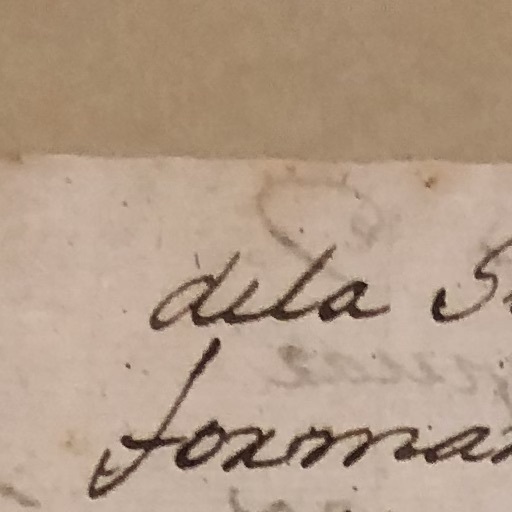 dela S
forma